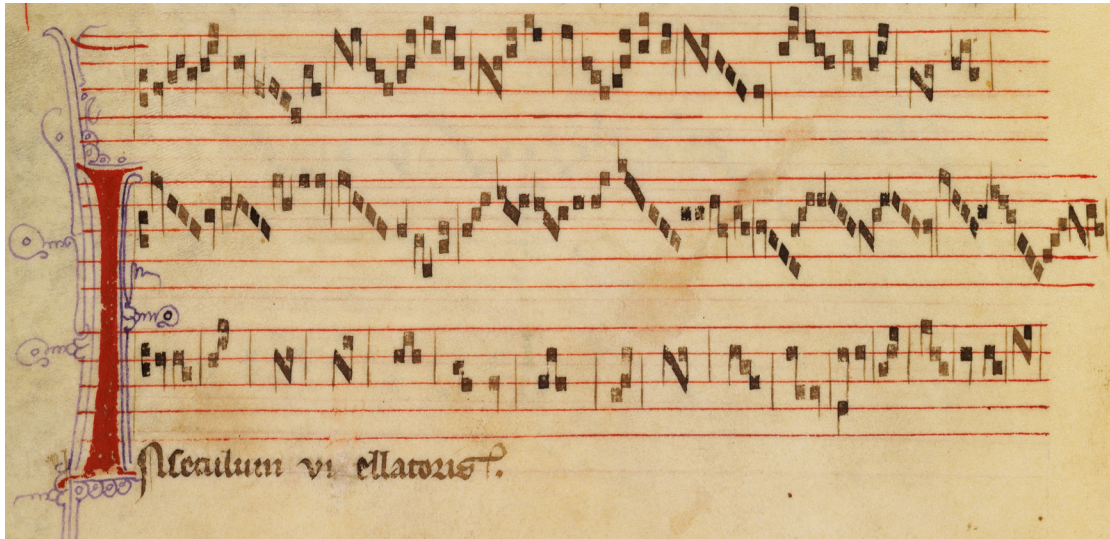 In seculum viellatoris.